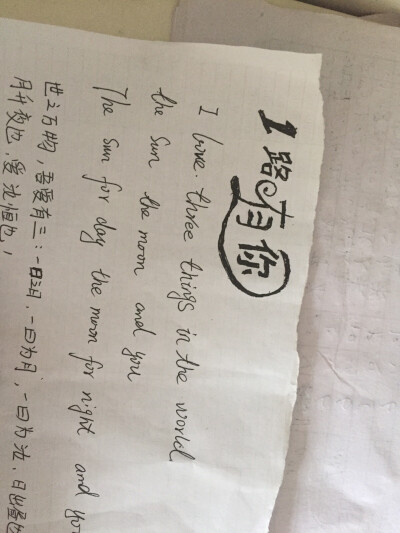 1路有你
I love three things in the world
the sun the moon and you
The sun for day the moon for night and you
世之万物，吾爱有三：一曰为月，一曰为汝．日出昼也
月升夜也，爱汝恒也，